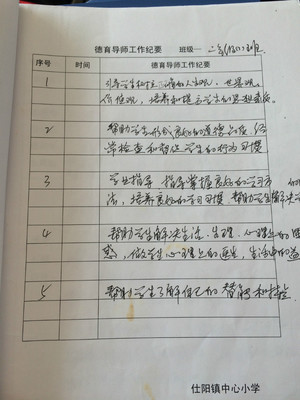 德育导师工作纪要 班级 二年级(1)班
序号 时间 德育导师工作纪要
1 引导学生树立正确的人生观,世界观
价值观,培养和提高学生的思想素质
2 帮助学生形成良好的道德品质,经
常检查和督促学生的行为习惯
3 学业指导 指导掌握良好的学习方
法,培养良好的学习习惯 帮助学生解决学
4 帮助学生解决生活、生理、心理上的困
惑,做学生心理上的医生,生活中的益
5 帮助学生了解自己的 和特点
仕阳镇中心小学